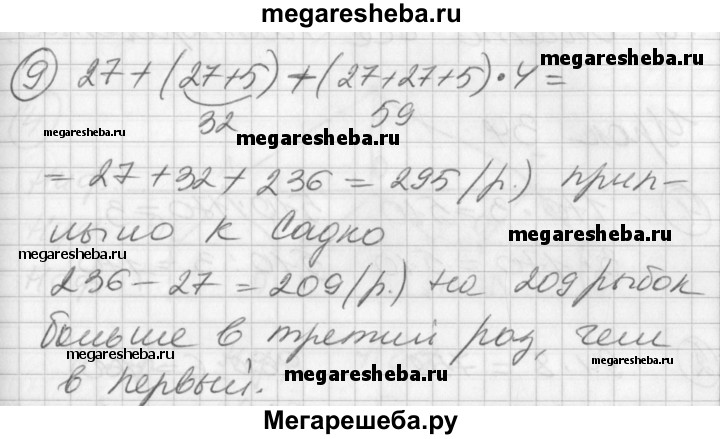 megaresheba.ru
megaresheba.ru
⑨ 27 + (27+5) + (27+27+5)·4 =
32 59
megaresheba.ru
megaresheba.ru
= 27 + 32 + 236 = 295 (р.) прип-
лыло к Садко
megaresheba.ru
megaresheba.ru
236 - 27 = 209 (р.) на 209 рыбок
больше в третий раз, чем
megaresheba.ru
megaresheba.ru
в первый.
megaresheba.ru
Мегарешеба.ру